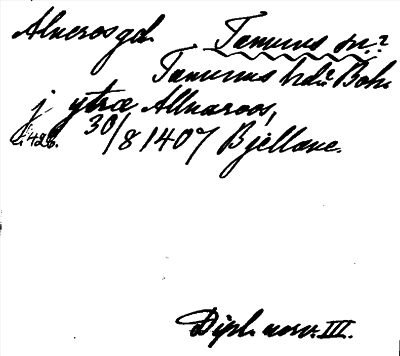 Alverosgd. Tamums sn.?
Tamums hds. Boh.
j ytræ Allnaroos,
s. 428. 30/8 1407 Bjellane.
Dipl. norv. III.